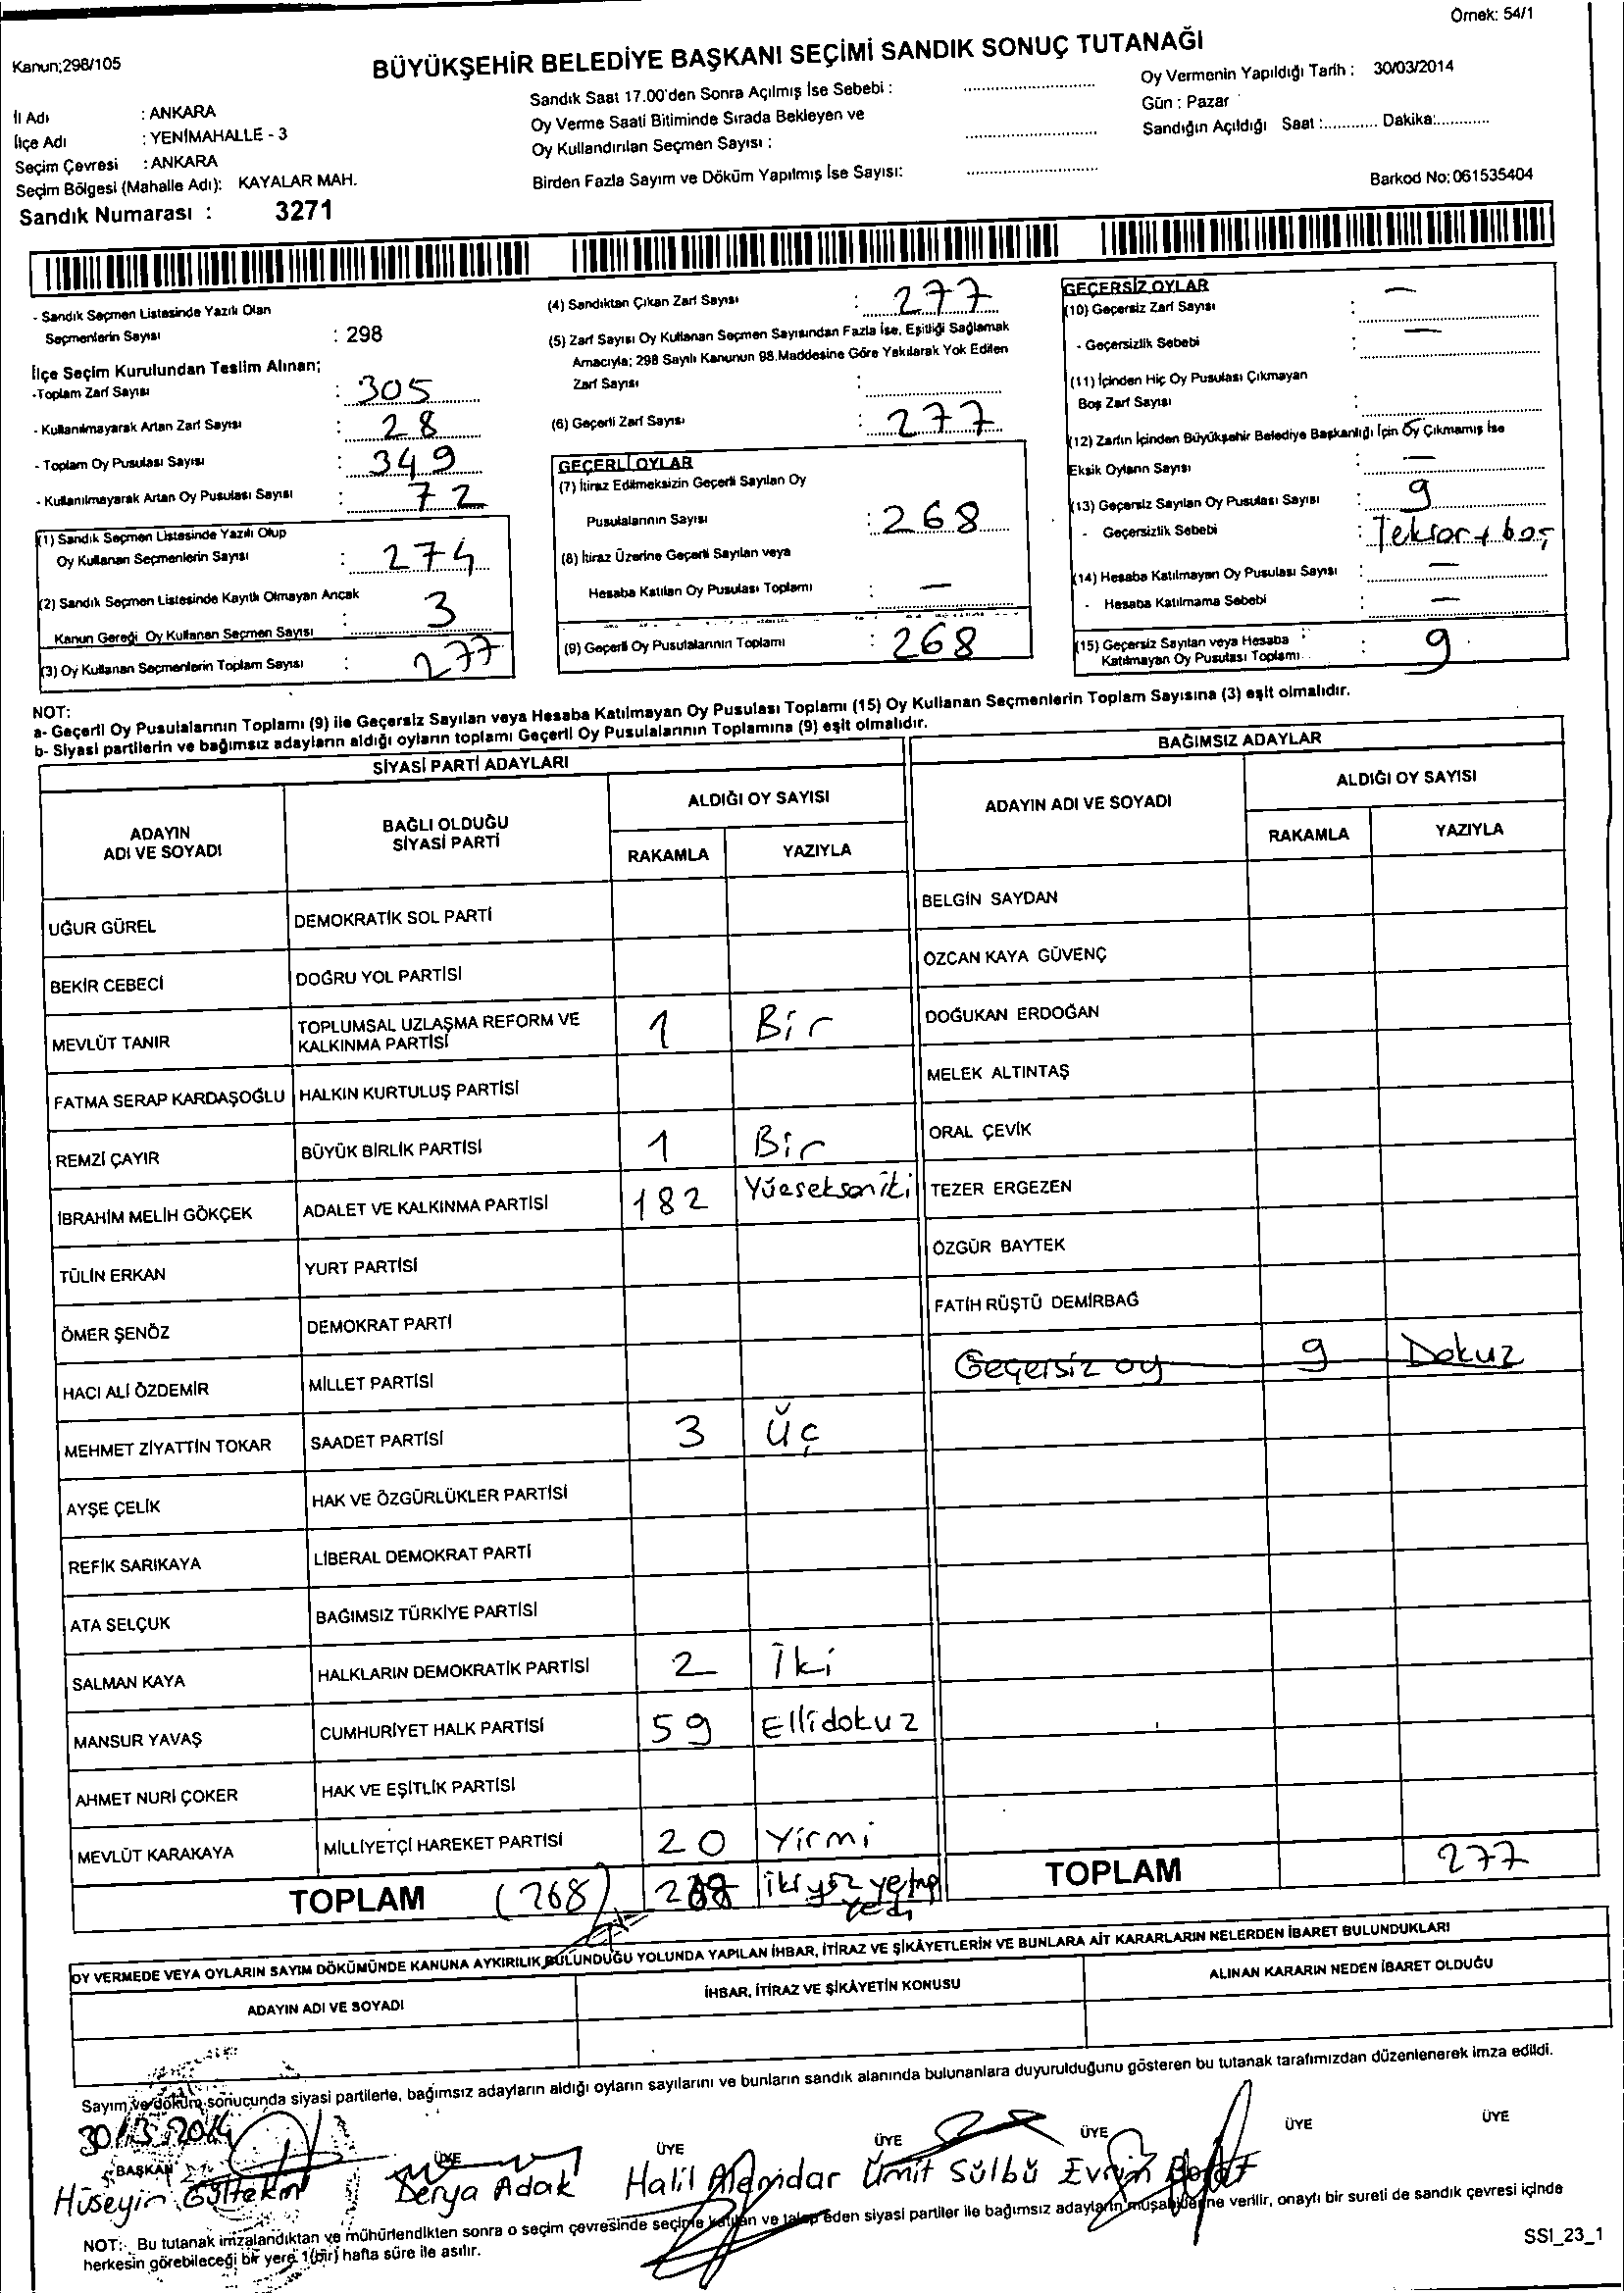 Örnek: 54/1
Kanun;298/105
BÜYÜKŞEHİR BELEDİYE BAŞKANI SEÇİMİ SANDIK SONUÇ TUTANAĞI
İl Adı : ANKARA
İlçe Adı : YENİMAHALLE - 3
Seçim Çevresi : ANKARA
Seçim Bölgesi (Mahalle Adı): KAYALAR MAH.
Sandık Numarası : 3271
Sandık Saat 17.00'den Sonra Açılmış İse Sebebi :
Oy Verme Saati Bitiminde Sırada Bekleyen ve
Oy Kullandırılan Seçmen Sayısı :
Birden Fazla Sayım ve Döküm Yapılmış İse Sayısı:
Oy Vermenin Yapıldığı Tarih : 30/03/2014
Gün : Pazar
Sandığın Açıldığı Saat :............ Dakika:............
Barkod No: 061535404
- Sandık Seçmen Listesinde Yazılı Olan
Seçmenlerin Sayısı : 298
İlçe Seçim Kurulundan Teslim Alınan;
-Toplam Zarf Sayısı : 305
- Kullanılmayarak Artan Zarf Sayısı : 28
- Toplam Oy Pusulası Sayısı : 349
- Kullanılmayarak Artan Oy Pusulası Sayısı : 72
(1) Sandık Seçmen Listesinde Yazılı Olup
Oy Kullanan Seçmenlerin Sayısı : 274
(2) Sandık Seçmen Listesinde Kayıtlı Olmayan Ancak
Kanun Gereği Oy Kullanan Seçmen Sayısı : 3
(3) Oy Kullanan Seçmenlerin Toplam Sayısı : 277
(4) Sandıktan Çıkan Zarf Sayısı : 277
(5) Zarf Sayısı Oy Kullanan Seçmen Sayısından Fazla İse, Eşitliği Sağlamak
Amacıyla; 298 Sayılı Kanunun 98.Maddesine Göre Yakılarak Yok Edilen
Zarf Sayısı :
(6) Geçerli Zarf Sayısı : 277
GEÇERLİ OYLAR
(7) İtiraz Edilmeksizin Geçerli Sayılan Oy
Pusulalarının Sayısı : 268
(8) İtiraz Üzerine Geçerli Sayılan veya
Hesaba Katılan Oy Pusulası Toplamı : —
(9) Geçerli Oy Pusulalarının Toplamı : 268
GEÇERSİZ OYLAR
(10) Geçersiz Zarf Sayısı : —
- Geçersizlik Sebebi : —
(11) İçinden Hiç Oy Pusulası Çıkmayan
Boş Zarf Sayısı :
(12) Zarfın İçinden Büyükşehir Belediye Başkanlığı İçin Oy Çıkmamış İse
Eksik Oyların Sayısı : —
(13) Geçersiz Sayılan Oy Pusulası Sayısı : 9
- Geçersizlik Sebebi :
(14) Hesaba Katılmayan Oy Pusulası Sayısı : —
- Hesaba Katılmama Sebebi : —
(15) Geçersiz Sayılan veya Hesaba
Katılmayan Oy Pusulası Toplamı : 9
NOT:
a- Geçerli Oy Pusulalarının Toplamı (9) ile Geçersiz Sayılan veya Hesaba Katılmayan Oy Pusulası Toplamı (15) Oy Kullanan Seçmenlerin Toplam Sayısına (3) eşit olmalıdır.
b- Siyasi partilerin ve bağımsız adayların aldığı oyların toplamı Geçerli Oy Pusulalarının Toplamına (9) eşit olmalıdır.
SİYASİ PARTİ ADAYLARI
ADAYIN
ADI VE SOYADI
BAĞLI OLDUĞU
SİYASİ PARTİ
ALDIĞI OY SAYISI
RAKAMLA YAZIYLA
UĞUR GÜREL DEMOKRATİK SOL PARTİ
BEKİR CEBECİ DOĞRU YOL PARTİSİ
MEVLÜT TANIR TOPLUMSAL UZLAŞMA REFORM VE KALKINMA PARTİSİ 1 Bir
FATMA SERAP KARDAŞOĞLU HALKIN KURTULUŞ PARTİSİ
REMZİ ÇAYIR BÜYÜK BİRLİK PARTİSİ 1 Bir
İBRAHİM MELİH GÖKÇEK ADALET VE KALKINMA PARTİSİ 182
TÜLİN ERKAN YURT PARTİSİ
ÖMER ŞENÖZ DEMOKRAT PARTİ
HACI ALİ ÖZDEMİR MİLLET PARTİSİ
MEHMET ZİYATTİN TOKAR SAADET PARTİSİ 3 Üç
AYŞE ÇELİK HAK VE ÖZGÜRLÜKLER PARTİSİ
REFİK SARIKAYA LİBERAL DEMOKRAT PARTİ
ATA SELÇUK BAĞIMSIZ TÜRKİYE PARTİSİ
SALMAN KAYA HALKLARIN DEMOKRATİK PARTİSİ 2 İki
MANSUR YAVAŞ CUMHURİYET HALK PARTİSİ 59 Ellidokuz
AHMET NURİ ÇOKER HAK VE EŞİTLİK PARTİSİ
MEVLÜT KARAKAYA MİLLİYETÇİ HAREKET PARTİSİ 20 Yirmi
TOPLAM (268)
BAĞIMSIZ ADAYLAR
ADAYIN ADI VE SOYADI
ALDIĞI OY SAYISI
RAKAMLA YAZIYLA
BELGİN SAYDAN
ÖZCAN KAYA GÜVENÇ
DOĞUKAN ERDOĞAN
MELEK ALTINTAŞ
ORAL ÇEVİK
TEZER ERGEZEN
ÖZGÜR BAYTEK
FATİH RÜŞTÜ DEMİRBAĞ
Geçersiz oy 9 Dokuz
TOPLAM 277
OY VERMEDE VEYA OYLARIN SAYIM DÖKÜMÜNDE KANUNA AYKIRILIK BULUNDUĞU YOLUNDA YAPILAN İHBAR, İTİRAZ VE ŞİKÂYETLERİN VE BUNLARA AİT KARARLARIN NELERDEN İBARET BULUNDUKLARI
ADAYIN ADI VE SOYADI İHBAR, İTİRAZ VE ŞİKÂYETİN KONUSU ALINAN KARARIN NEDEN İBARET OLDUĞU
Sayım ve döküm sonucunda siyasi partilerle, bağımsız adayların aldığı oyların sayılarını ve bunların sandık alanında bulunanlara duyurulduğunu gösteren bu tutanak tarafımızdan düzenlenerek imza edildi.
30.03.2014
BAŞKAN ÜYE ÜYE ÜYE ÜYE ÜYE ÜYE
Hüseyin Gültekin Derya Adak Halil Ümit Sülbü Evrim
NOT:- Bu tutanak imzalandıktan ve mühürlendikten sonra o seçim çevresinde seçime katılan ve talep eden siyasi partiler ile bağımsız adayların müşahitlerine verilir, onaylı bir sureti de sandık çevresi içinde
herkesin görebileceği bir yere 1(bir) hafta süre ile asılır.
SSI_23_1